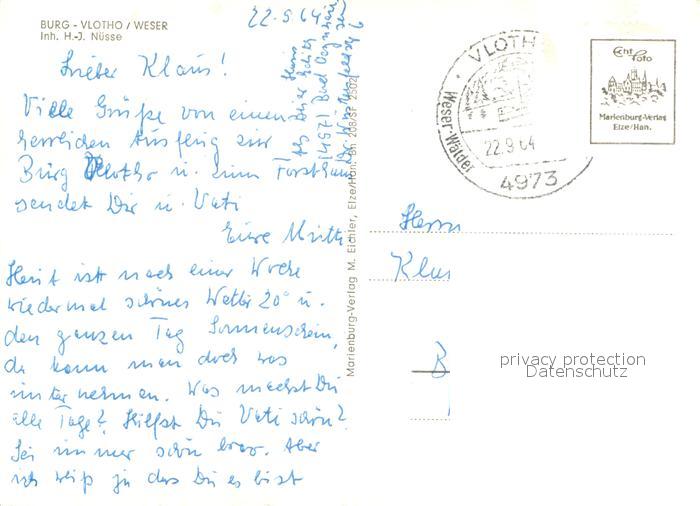 BURG - VLOTHO / WESER
Inh. H.-J. Nüsse
22.9.64
Lieber Klaus!
Viele Grüße von einem
herrlichen Ausflug zur
Burg Vlotho u. zum Forsthaus
sendet Dir u. Vati
Eure Mutti
Heut ist nach einer Woche
wiedermal schönes Wetter 20° u.
den ganzen Tag Sonnenschein,
da kann man doch was
unternehmen. Was machst Du
alle Tage? Hilfst Du Vati schön?
Sei immer schön brav. Aber
ich weiß ja das Du es bist
Marienburg-Verlag M. Eichler, Elze/Han.
VLOTH
Weser-Wälder
22.9.64
4973
Echt
Foto
Marienburg-Verlag
Elze/Han.
Herrn
Klaus
B
privacy protection
Datenschutz